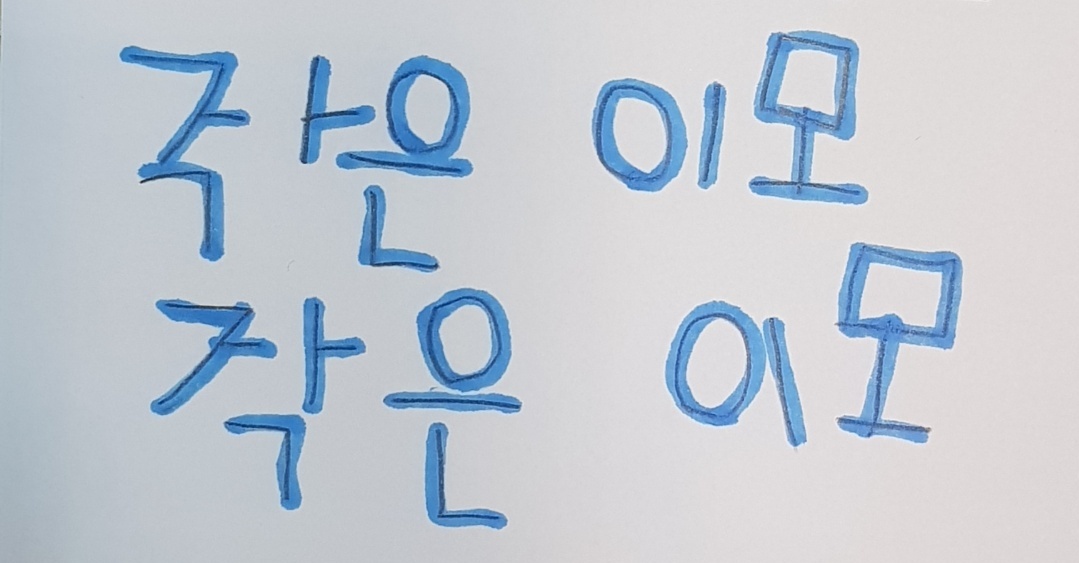 작은 이모
작은 이모